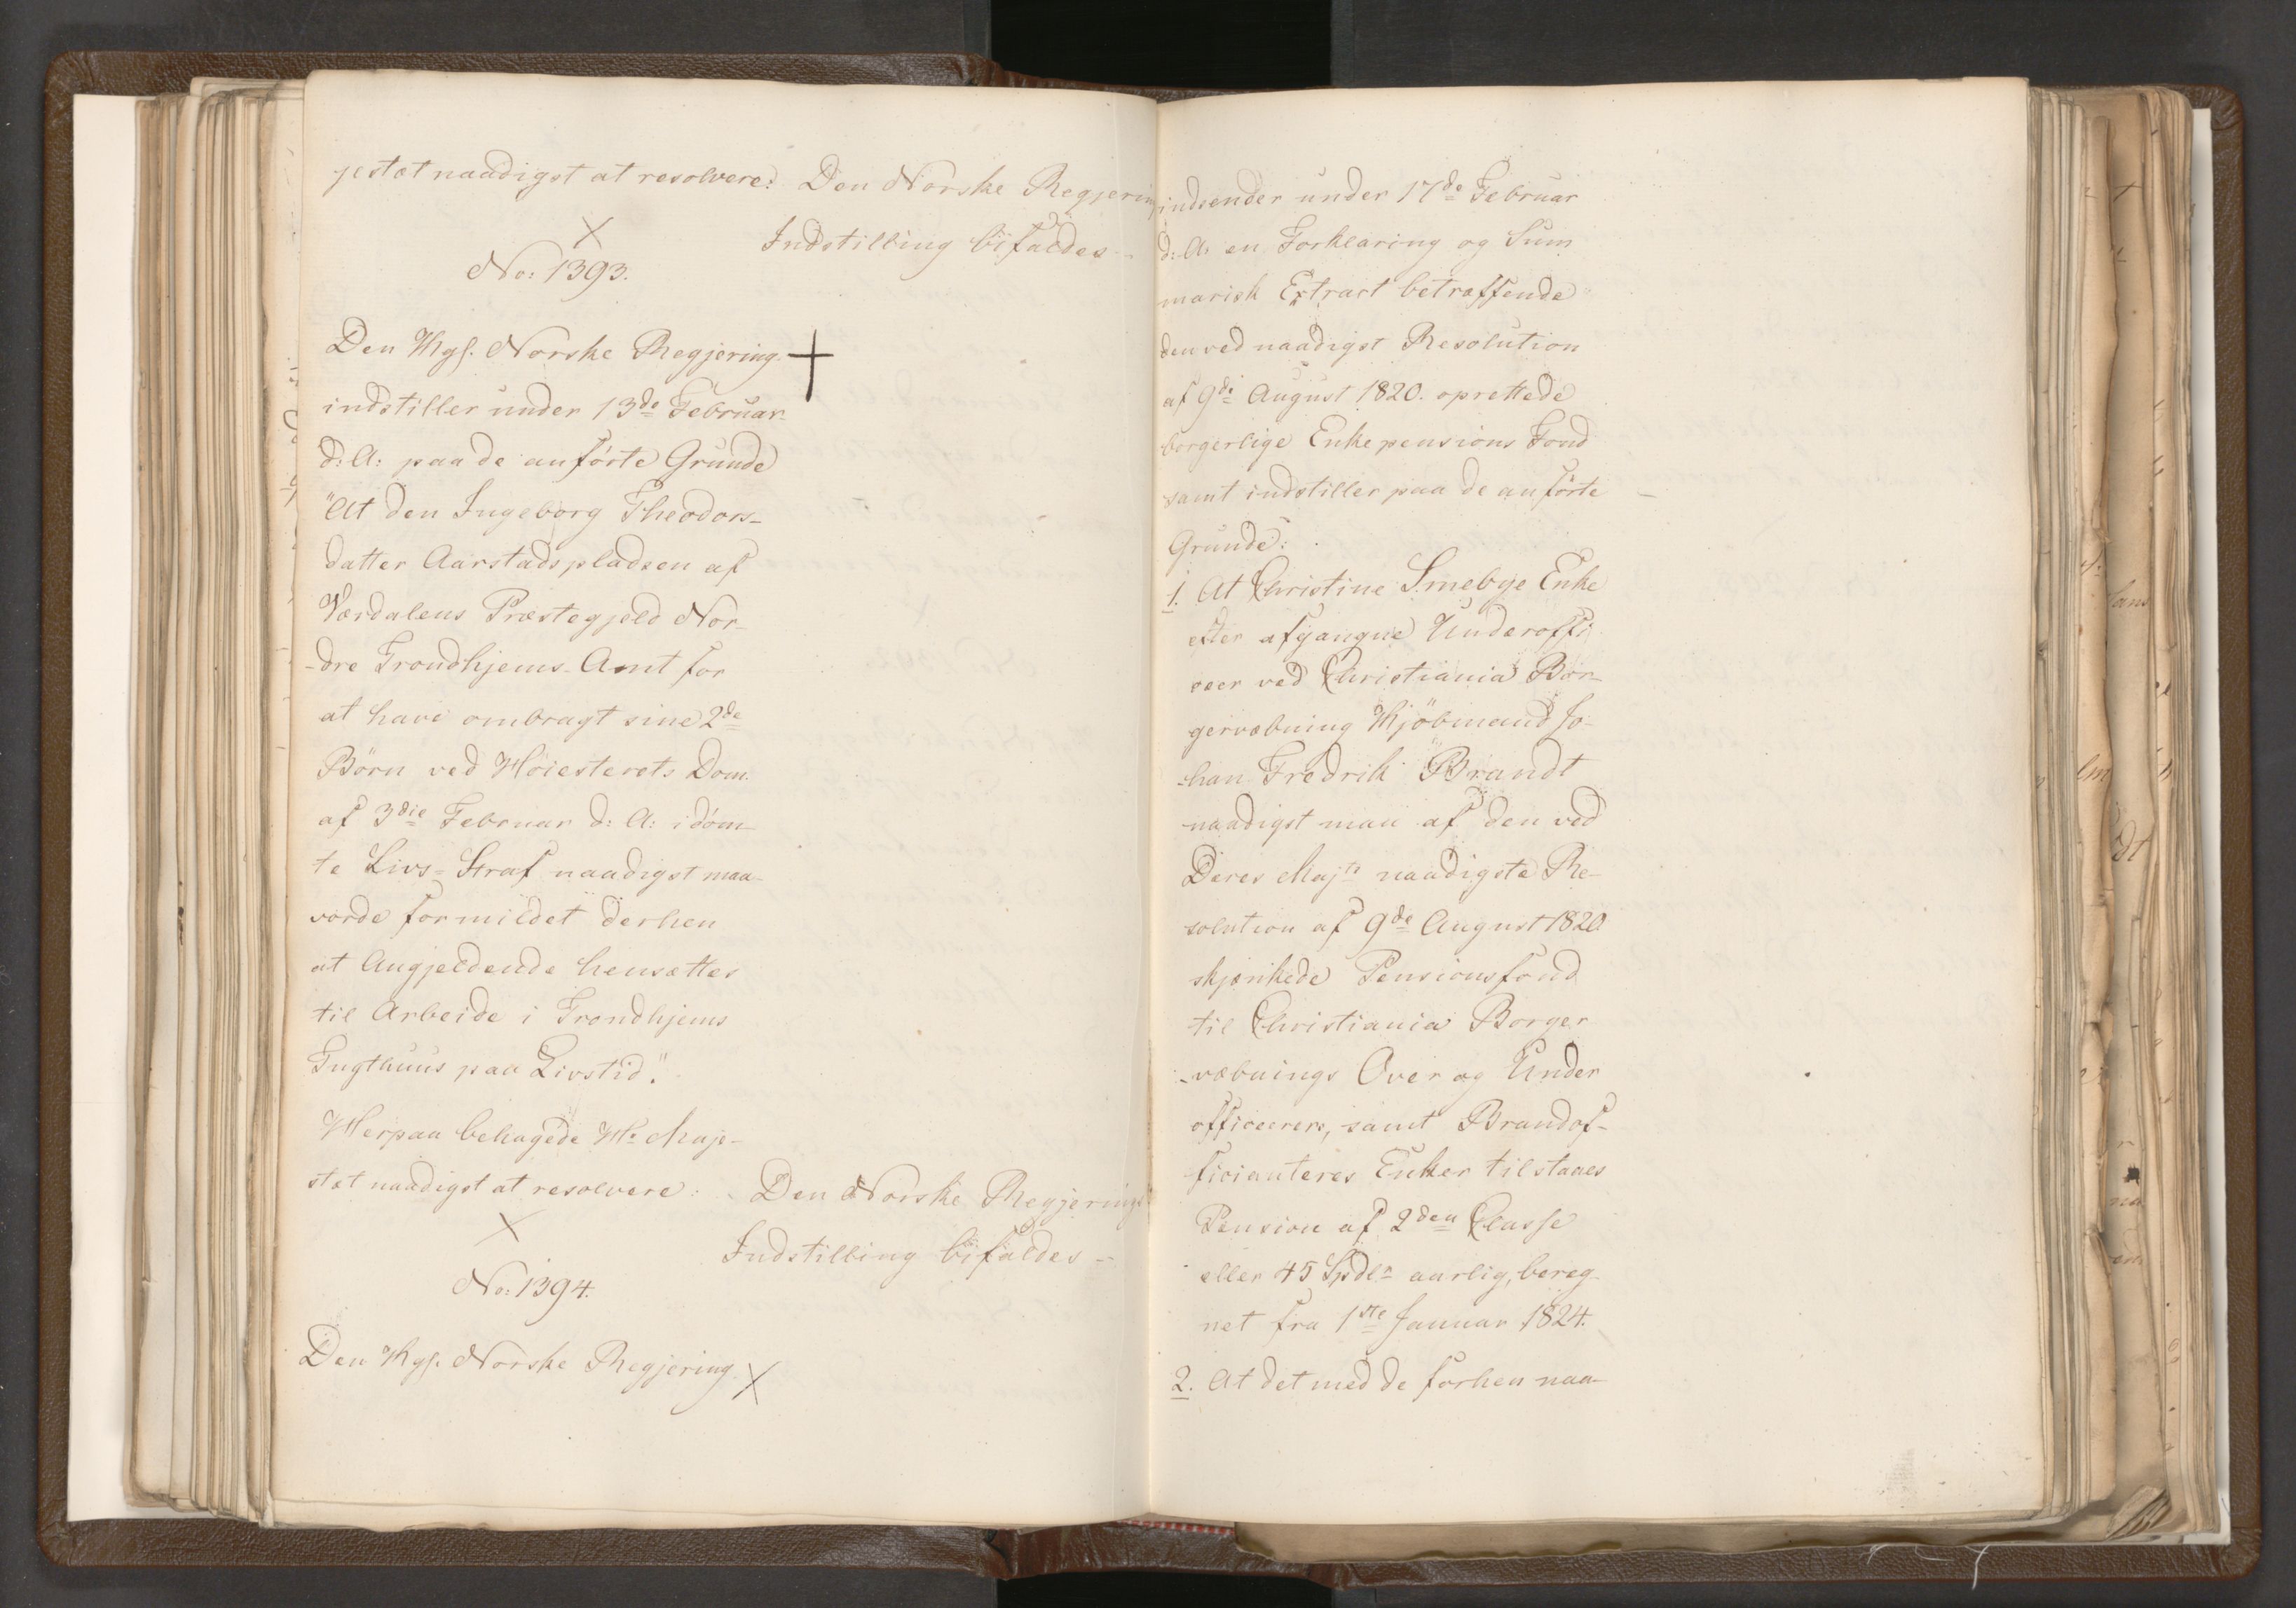 jestæt naadigst at resolvere: Den Norske Regjering
Indstilling bifaldes –
No: 1393.
Den Kgl. Norske Regjering
indstiller under 13de Februar
d: A: paa de anførte Grunde
"At den Ingeborg Theodors-
datter Aarstadspladsen af
Værdalens Præstegjeld Nor-
-dre Trondhjems Amt for
at have ombragt sine 2de
Börn ved Höiesterets Dom
af 3die Februar d: A: idöm-
te Livs-Straf naadigst maa
vorde formildet derhen
at Angjeldende hensættes
til Arbeide i Trondhjems
Tugthuus paa Livstid."
Herpaa behagede H. Maje-
stæt naadigst at resolvere: Den Norske Regjerings
Indstilling bifaldes –
No: 1394.
Den Kgl. Norske Regjering
indsender under 17de Februar
d: A: en Forklaring og Sum
marisk Extract betræffende
den ved naadigst Resolution
af 9de August 1820. oprettede
borgerlige Enkepensions Fond
samt indstiller paa de anförte
Grunde:
1. At Christine Smebye Enke
efter afgangne Underoffi
ceer ved Christiania Bor-
gervæbning Kjöbmand Jo-
-han Fredrik Brandt
naadigst maa af den ved
Deres Majts naadigste Re-
solution af 9de August 1820
skjænkede Pensionsfond
til Christiania Borger
-væbnings Over og Under
officerers, samt Brandof-
ficianteres Enker tilstaaes
Pension af 2den Classe
eller 45 Spdlr aarlig, bereg
net fra 1ste Januar 1824.
2. At det med de forhen naa-